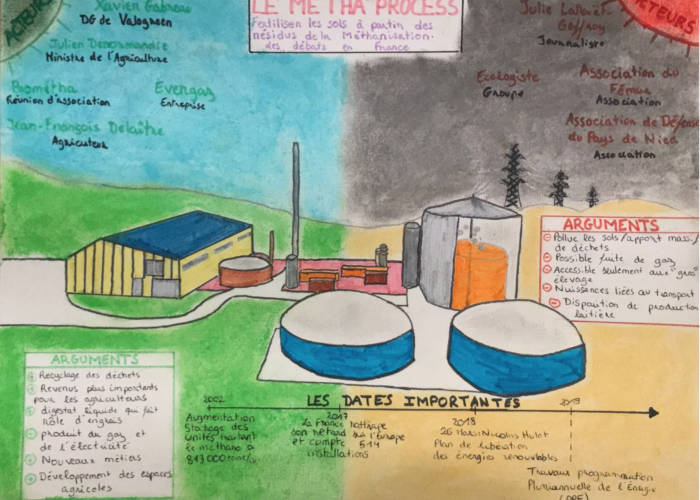 ACTEURS
Xavier Gabreau
DG de Valogreen
Julien Denormandie
Ministre de l'Agriculture
Prométha
Réunion d'association
Evergaz
Entreprise
Jean-François Delaitre
Agriculteur
LE METHA PROCESS
Fertiliser les sols à partir des
résidus de la Méthanisation.
des débats en France
ACTEURS
Julie Lallouët-
Geffroy
Journaliste
Ecologiste
Groupe
Association du
Association
Association de Défense
du Pays de Nied
Association
ARGUMENTS
Pollue les sols/apport massi
de déchets
Possible fuite de gaz
Accessible seulement aux gros
élevage
Nuissances liées au transport
Disparition de production
laitière
ARGUMENTS
Recyclage des déchets
Revenus plus importants
pour les agriculteurs
digestat liquide qui fait
rôle d'engrais
produit du gaz et
de l'électricité
Nouveaux métiers
Développement des espaces
agricoles
LES DATES IMPORTANTES
2002
Augmentation
Stockage des
Unités traitant
le méthane à
2017
La France rattrape
son retard sur l'Europe
et compte 514
installations
2018
26 Mars: Nicolas Hulot
Plan de libération
des énergies renouvlables
2019
Travaux programmation
Pluriannuelle de l'Energie
(PPE)